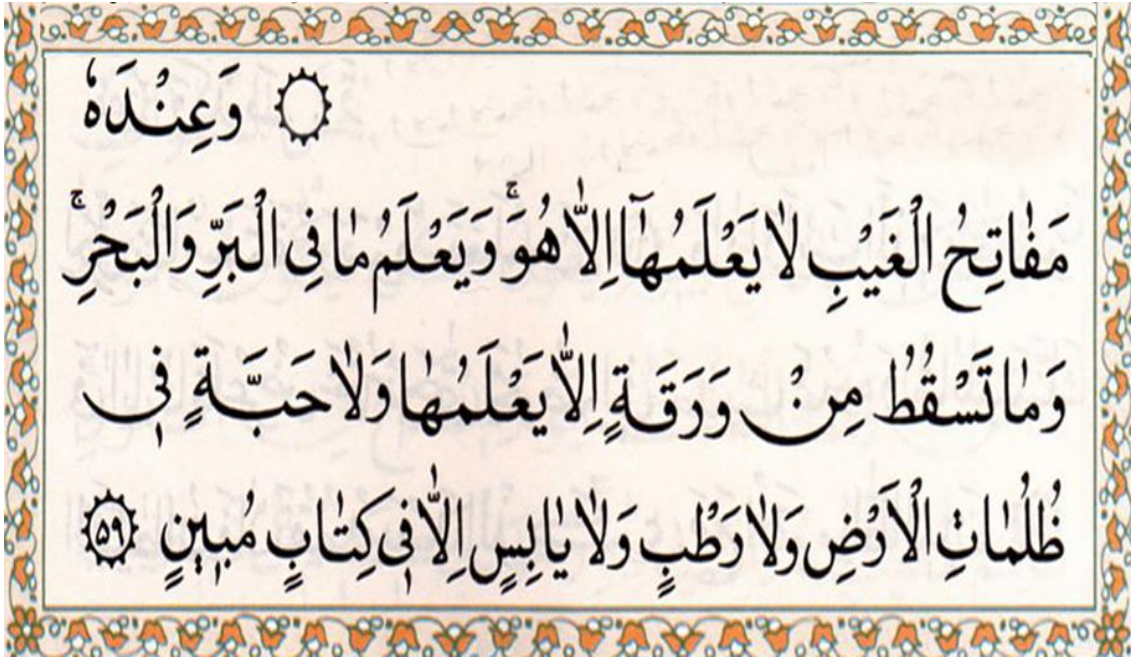 وَعِنْدَهُ
مَفَاتِحُ الْغَيْبِ لَا يَعْلَمُهَٓا اِلَّا هُوَۚ وَيَعْلَمُ مَا فِى الْبَرِّ وَالْبَحْرِۚ
وَمَا تَسْقُطُ مِنْ وَرَقَةٍ اِلَّا يَعْلَمُهَا وَلَا حَبَّةٍ فٖى
ظُلُمَاتِ الْاَرْضِ وَلَا رَطْبٍ وَلَا يَابِسٍ اِلَّا فٖى كِتَابٍ مُبٖينٍ ﴿٥٩﴾